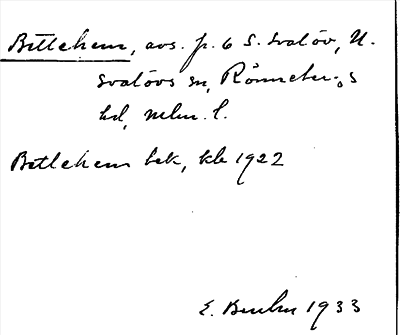 Betlehem, avs. p. 6 S. Svalöv, N.
Svalövs sn, Rönneber:s
hd, Mlm. l.
Betlehem bek, kb 1922
E. 1933